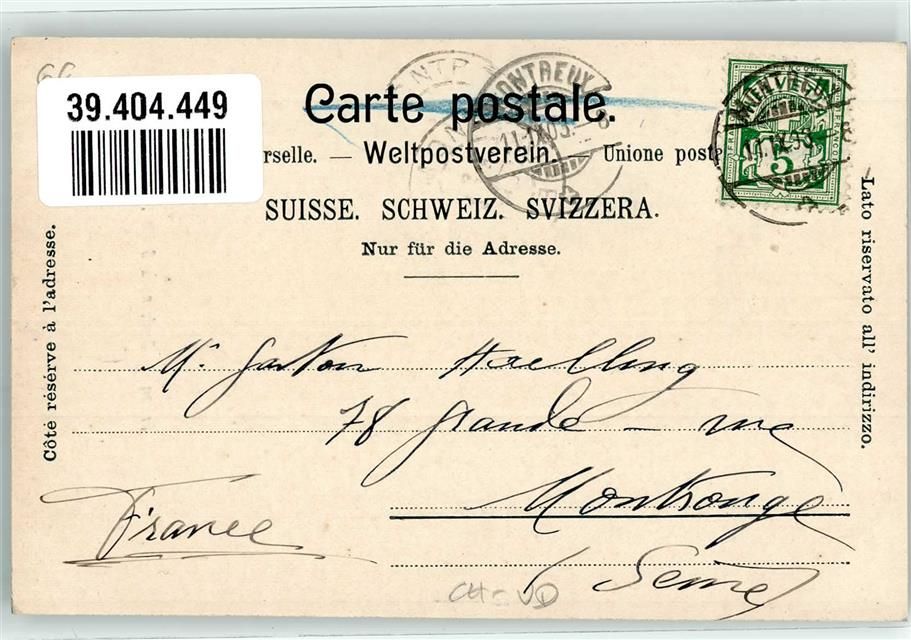 66
39.404.449
Carte postale.
rselle. — Weltpostverein. — Unione post
SUISSE. SCHWEIZ. SVIZZERA.
Nur für die Adresse.
Côté réservé à l'adresse.
Lato riservato all' indirizzo.
MONTREUX
5
Mr Gaston
78 Grande - rue
Montrouge
(Seine)
France
CH-VD